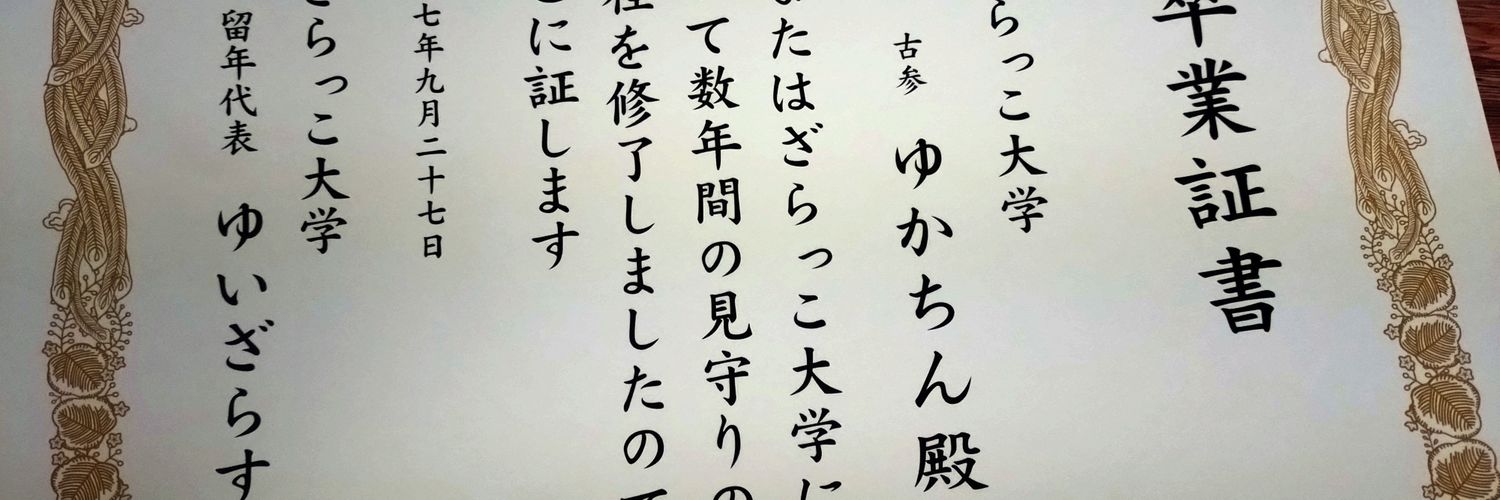 卒業証書
らっこ大学
古参 ゆかちん殿
たはざらっこ大学に
て数年間の見守りの
程を修了しましたので
に証します
七年九月二十七日
ざらっこ大学
留年代表 ゆいざらす